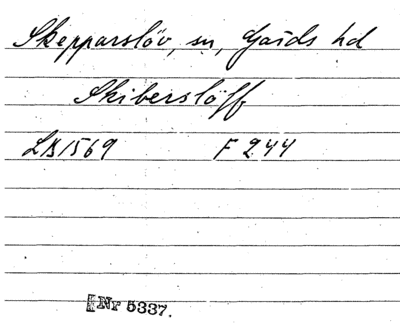 Skepparslöv, sn, Gärds hd
Skiberslöff
LB 1569 F 244
Nr 5337.